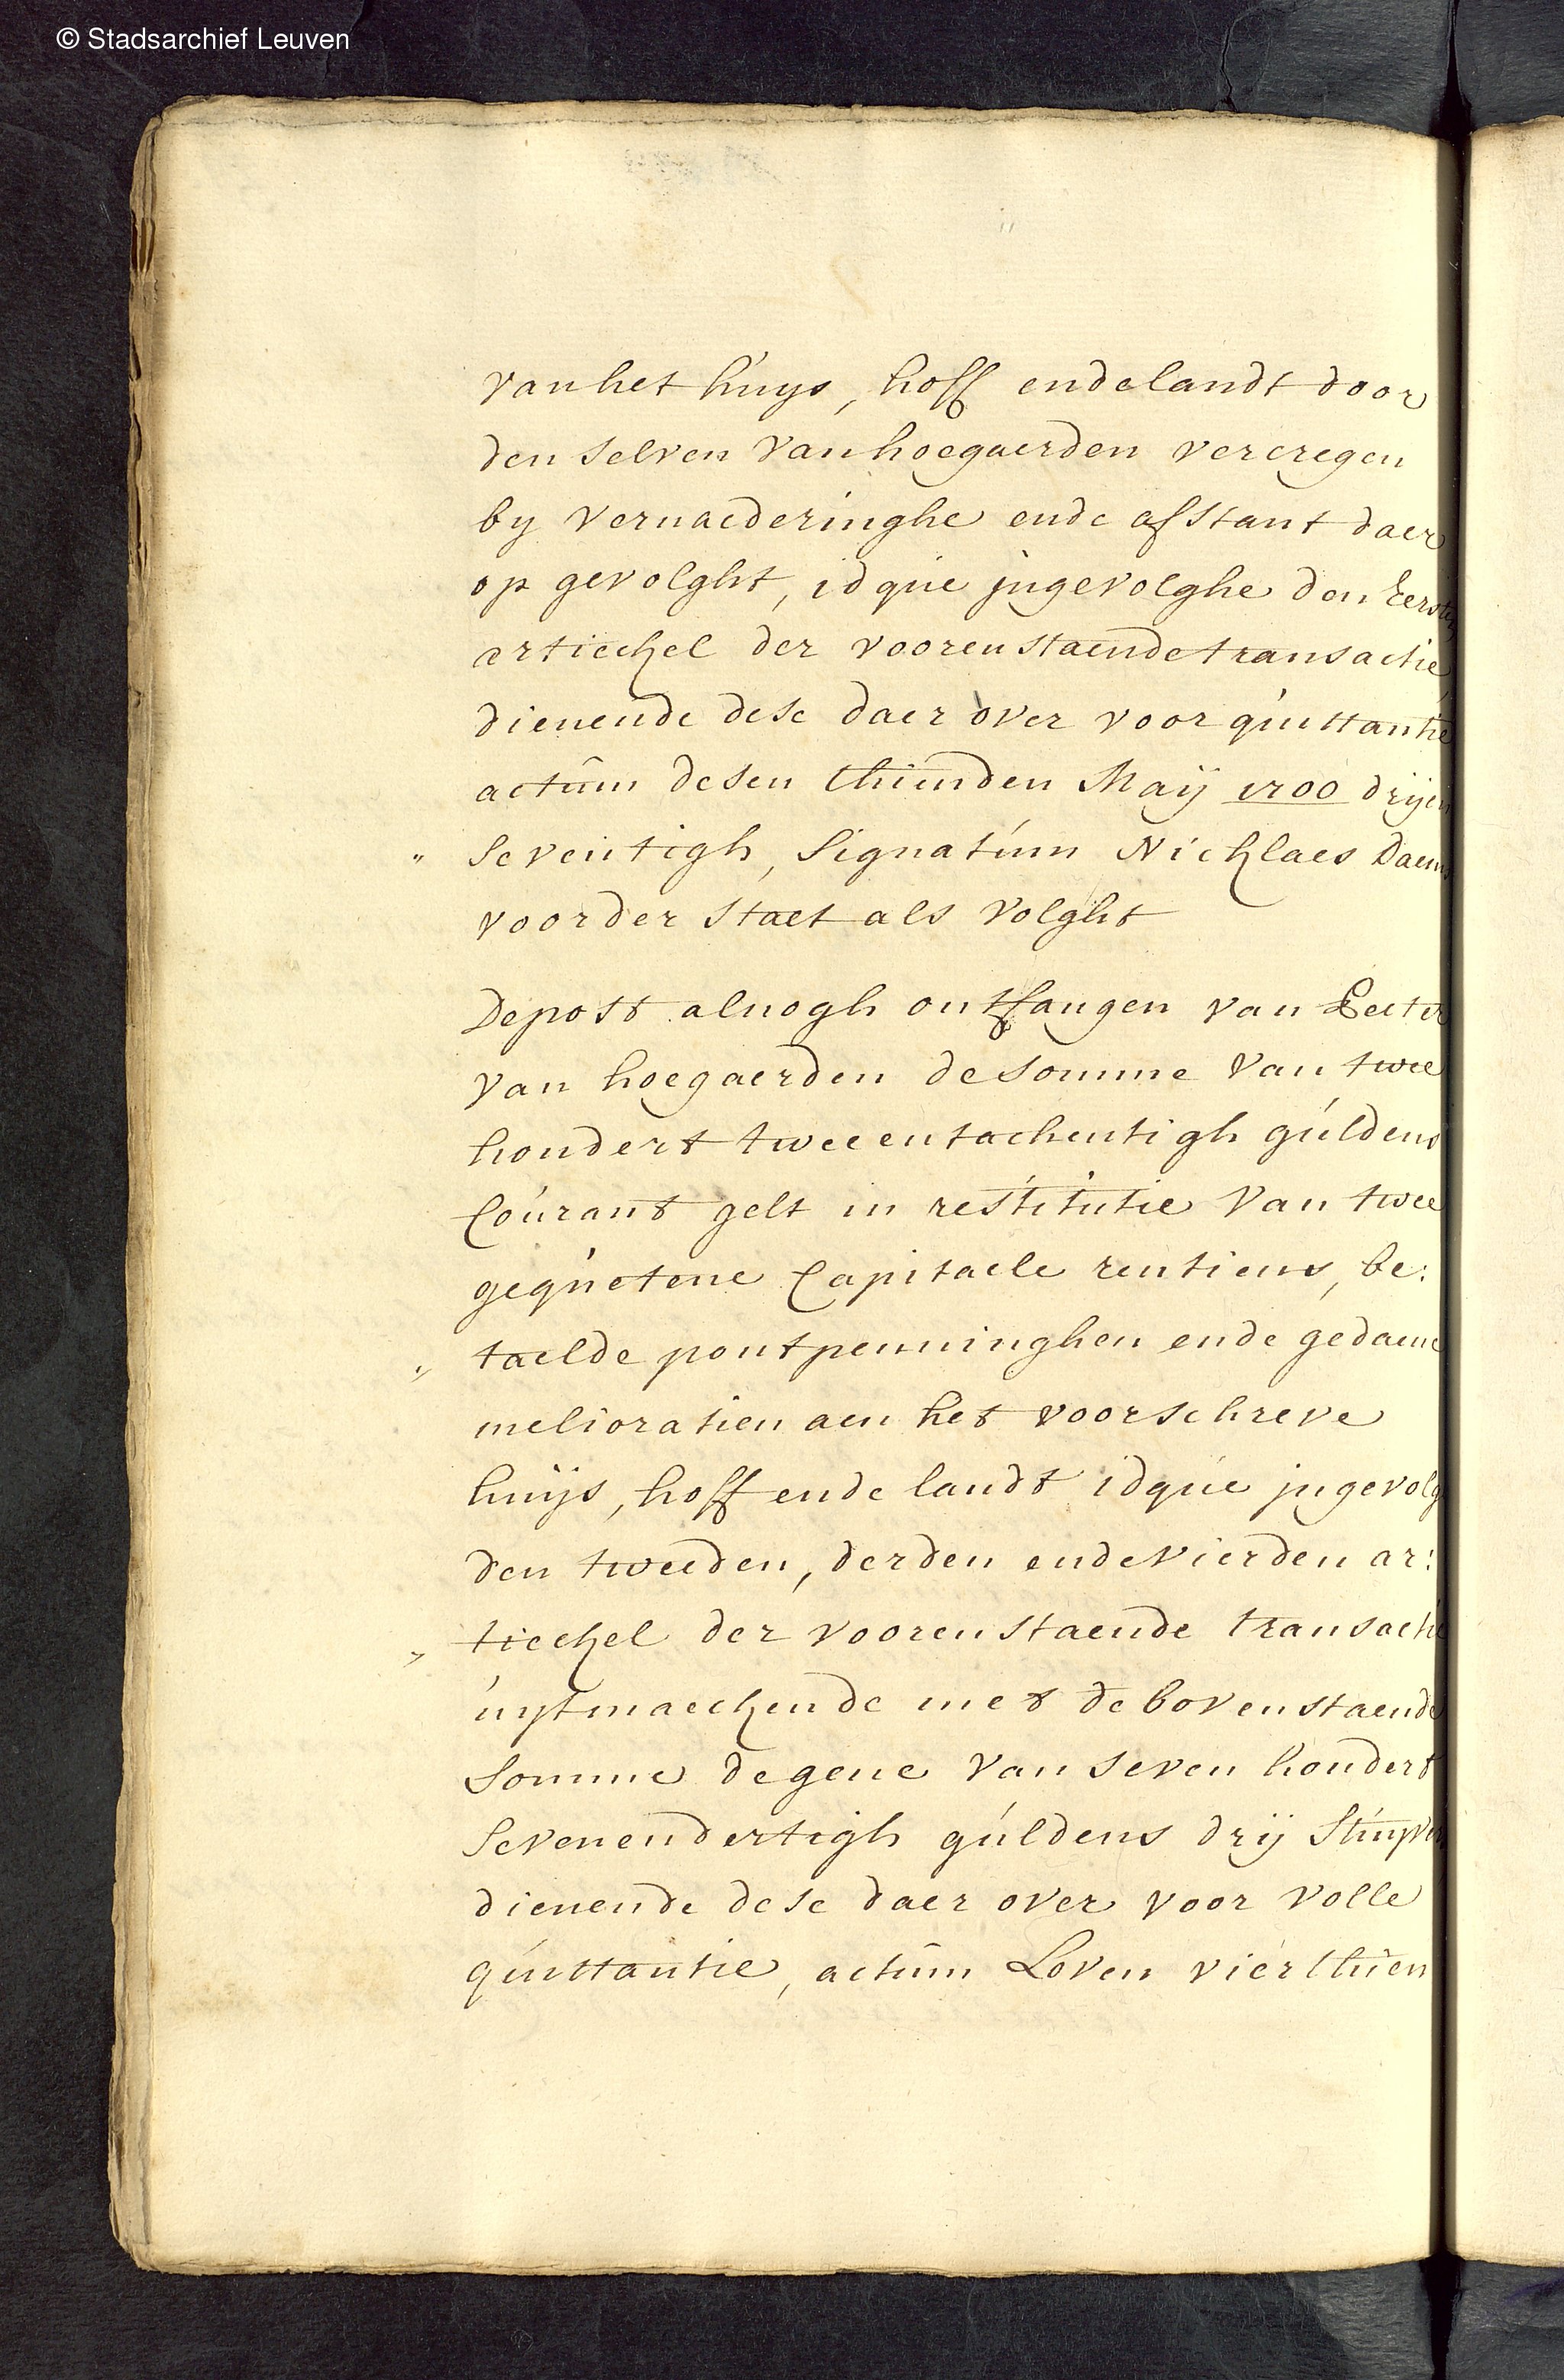 © Stadsarchief Leuven
van het huijs, hoff ende landt door
den selven van hoegaerden vercregen
by vernaederinghe ende afstant daer
op gevolght, idque jngevolghe den Eersten
artieckel der voorenstaende transactie,
dienende dese daer over voor quittantie
actum desen thiinden Maÿ 1700 drijen
„ seventigh, signatum Nicklaes Daems
voorder staet als volght
Depost alnogh ontfangen van Peeter
van hoegaerden de somme van twee
hondert tweeentachentigh guldens
Courant gelt in restitutie van twee
gequetene Capitaele rentiens, be:
„ taelde pontpenninghen ende gedaene
melioratien aen het voorschreve
huijs, hoff ende landt idque jngevolg
den tweeden, derden ende vierden ar:
„ tieckel der voorenstaende transactie
uytmaeckende met de bovenstaende
somme degene van seven hondert
sevenendertigh guldens drij stuyvers
dienende dese daer over voor volle
quittantie, actum Loven vierthien